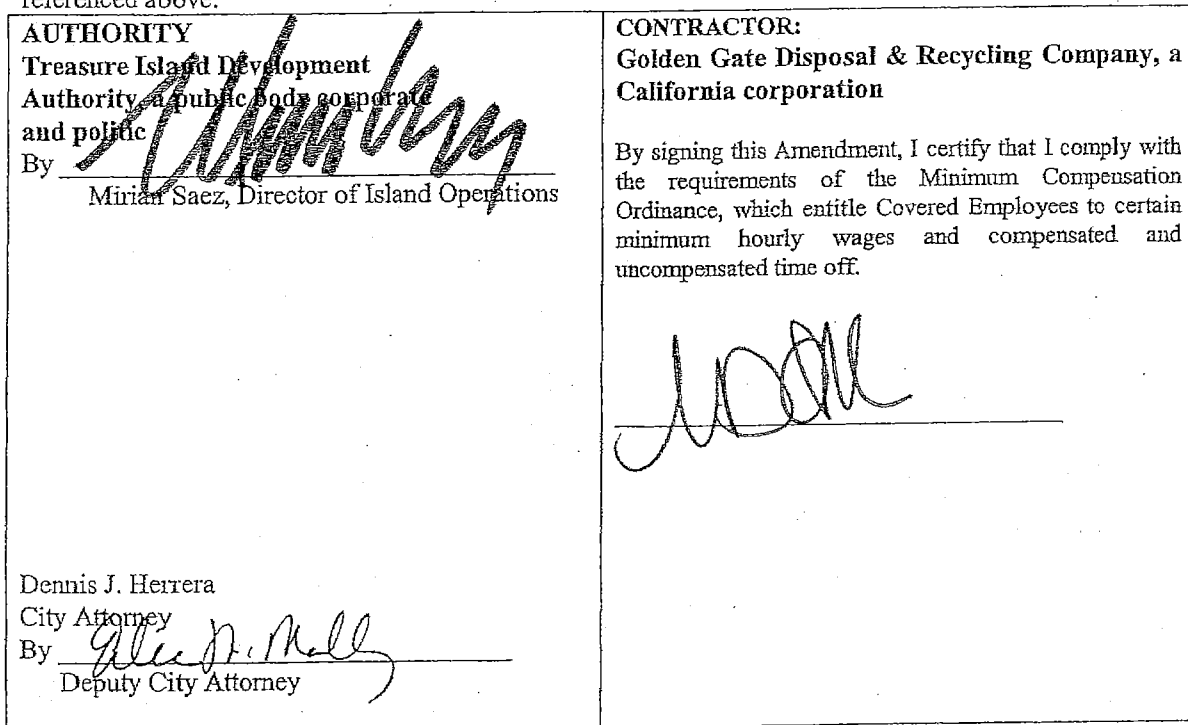 referenced above.
AUTHORITY
Treasure Island Development
Authority, a public body corporate
and politic
By
Mirian Saez, Director of Island Operations
Dennis J. Herrera
City Attorney
By
Deputy City Attorney
CONTRACTOR:
Golden Gate Disposal & Recycling Company, a
California corporation
By signing this Amendment, I certify that I comply with
the requirements of the Minimum Compensation
Ordinance, which entitle Covered Employees to certain
minimum hourly wages and compensated and
uncompensated time off.